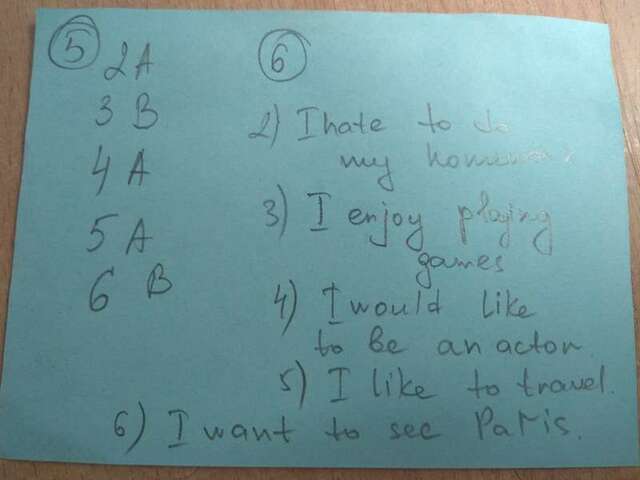 5
2 A
3 B
4 A
5 A
6 B
6
2) I hate to do
my homework
3) I enjoy playing
games
4) I would like
to be an actor.
5) I like to travel.
6) I want to see Paris.